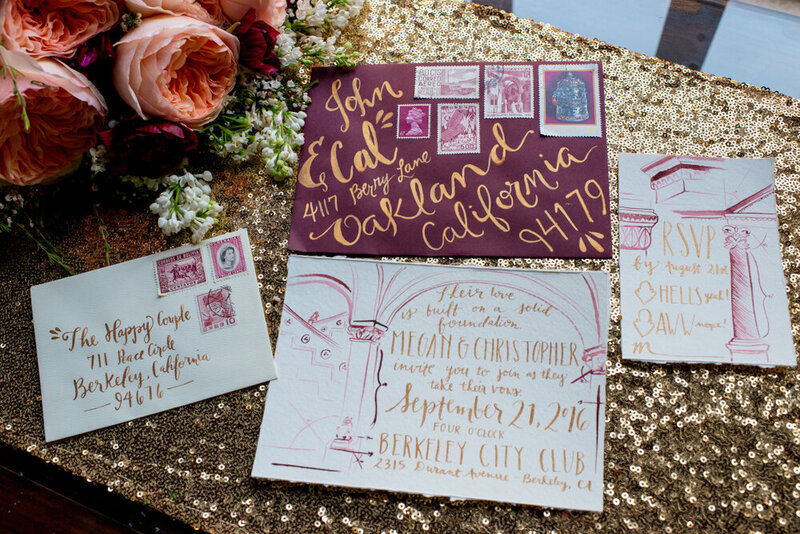 John
& Cal
4117 Berry Lane
Oakland
California
94179
The Happy Couple
711 Race Circle
Berkeley, California
94676
Their love
is built on a solid
foundation.
MEGAN & CHRISTOPHER
invite you to join as they
take their vows
September 21, 2016
FOUR O'CLOCK
BERKELEY CITY CLUB
2315 Durant Avenue - Berkeley, CA
RSVP
by August 21st
HELLS yeah!
AWW nope!
M